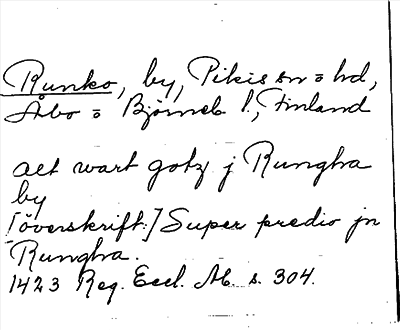 Runko, by, Pikis sn o hd,
Åbo o Björneb l., Finland
alt wart gotz j Rungha
by
[överskrift:] Super predio jn
Rungha.
1423 Reg. Eccl. Ab. s. 304.